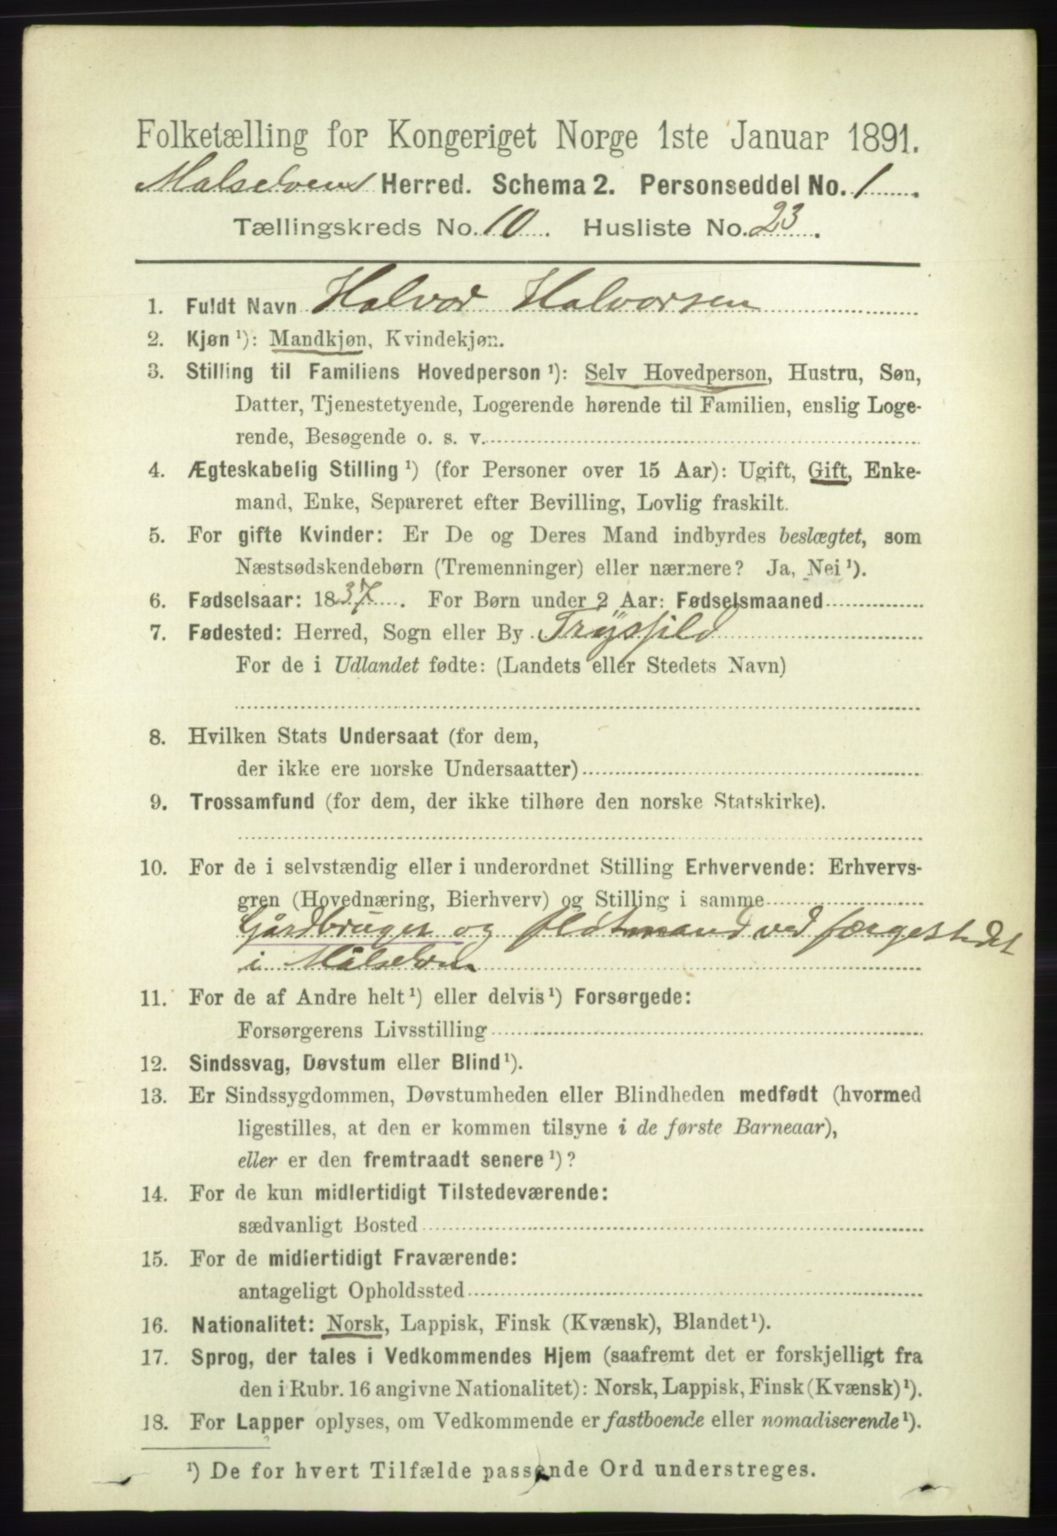 Folketælling for Kongeriget Norge 1ste Januar 1891.
Malselven Herred. Schema 2. Personseddel No. 1.
Tællingskreds No. 10. Husliste No. 23.
1. Fuldt Navn Halvor Halvorsen
2. Kjøn ¹): Mandkjøn, Kvindekjøn.
3. Stilling til Familiens Hovedperson ¹): Selv Hovedperson, Hustru, Søn,
Datter, Tjenestetyende, Logerende hørende til Familien, enslig Loge-
rende, Besøgende o. s. v.
4. Ægteskabelig Stilling ¹) (for Personer over 15 Aar): Ugift, Gift, Enke-
mand, Enke, Separeret efter Bevilling, Lovlig fraskilt.
5. For gifte Kvinder: Er De og Deres Mand indbyrdes beslægtet, som
Næstsødskendebørn (Tremenninger) eller nærmere? Ja, Nei ¹).
6. Fødselsaar: 1837. For Børn under 2 Aar: Fødselsmaaned
7. Fødested: Herred, Sogn eller By Trysfild
For de i Udlandet fødte: (Landets eller Stedets Navn)
8. Hvilken Stats Undersaat (for dem,
der ikke ere norske Undersaatter)
9. Trossamfund (for dem, der ikke tilhøre den norske Statskirke).
10. For de i selvstændig eller i underordnet Stilling Erhvervende: Erhvervs-
gren (Hovednæring, Bierhverv) og Stilling i samme
Gårdbruger og fløtmand ved færgestedet
i Målselven
11. For de af Andre helt ¹) eller delvis ¹) Forsørgede:
Forsørgerens Livsstilling
12. Sindssvag, Døvstum eller Blind ¹).
13. Er Sindssygdommen, Døvstumheden eller Blindheden medfødt (hvormed
ligestilles, at den er kommen tilsyne i de første Barneaar),
eller er den fremtraadt senere ¹)?
14. For de kun midlertidigt Tilstedeværende:
sædvanligt Bosted
15. For de midlertidigt Fraværende:
antageligt Opholdssted
16. Nationalitet: Norsk, Lappisk, Finsk (Kvænsk), Blandet ¹).
17. Sprog, der tales i Vedkommendes Hjem (saafremt det er forskjelligt fra
den i Rubr. 16 angivne Nationalitet): Norsk, Lappisk, Finsk (Kvænsk) ¹).
18. For Lapper oplyses, om Vedkommende er fastboende eller nomadiserende ¹).
¹) De for hvert Tilfælde passende Ord understreges.